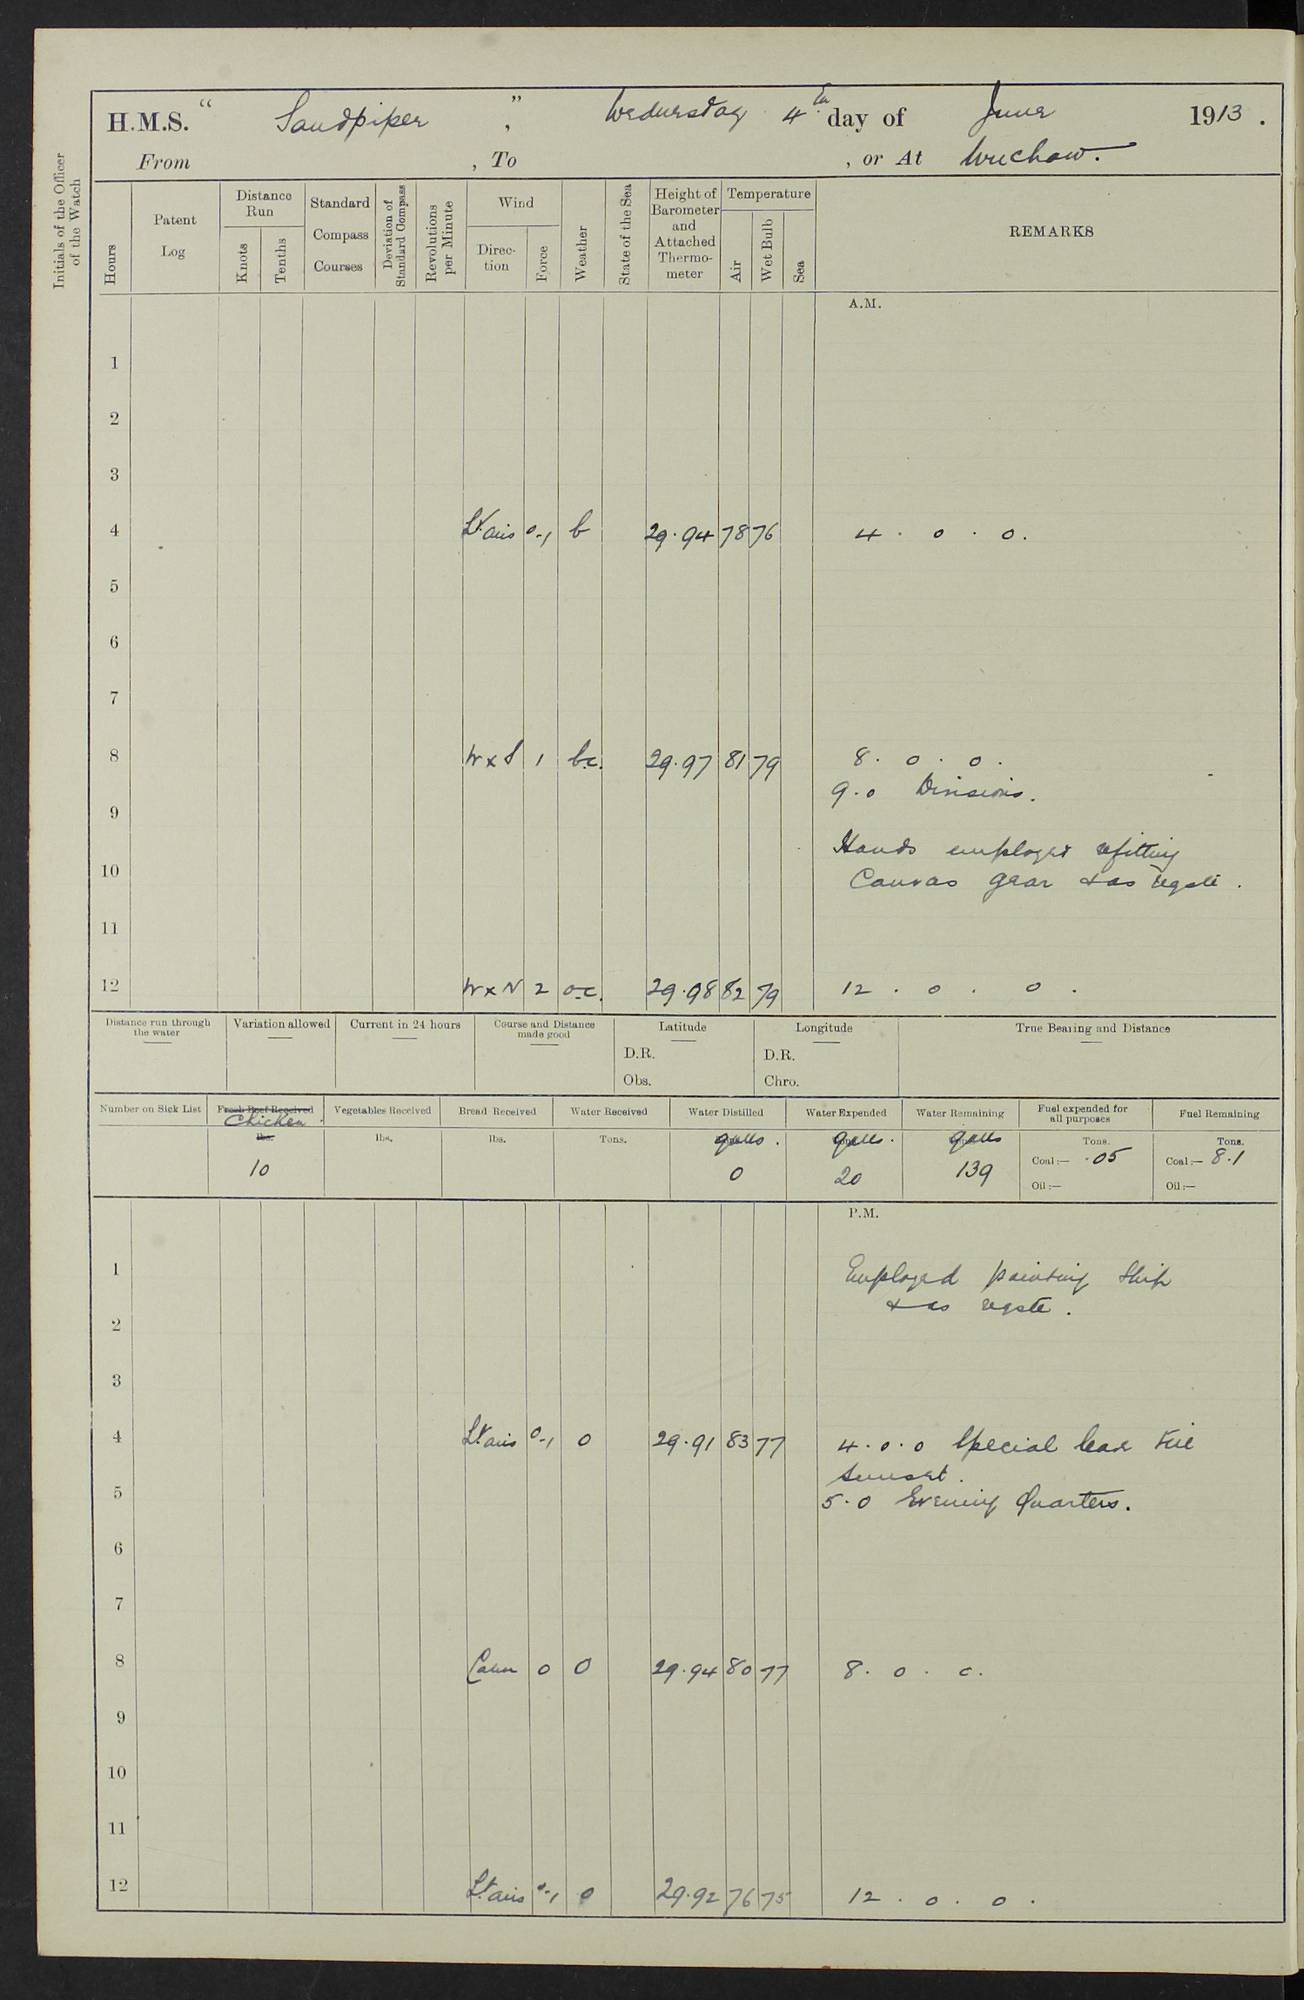 H.M.S. " Sandpiper ", Wednesday 4th day of June 1913.
From , To , or At Wuchow.
Initials of the Officer of the Watch
Hours
Patent Log
Distance Run
Knots
Tenths
Standard Compass Courses
Deviation of Standard Compass
Revolutions per Minute
Wind
Direc-tion
Force
Weather
State of the Sea
Height of Barometer and Attached Thermo-meter
Temperature
Air
Wet Bulb
Sea
REMARKS
A.M.
1
2
3
4 Lt airs 0-1 b 29.94 78 76 4 . 0 . 0.
5
6
7
8 W x S 1 b.c. 29.97 81 79 8 . 0 . 0 .
9.0 Divisions.
9
Hands employed refitting
10 Canvas gear & as reqste.
11
12 W x N 2 o.c. 29.98 82 79 12 . 0 . 0 .
Distance run through the water
Variation allowed
Current in 24 hours
Course and Distance made good
Latitude
D.R.
Obs.
Longitude
D.R.
Chro.
True Bearing and Distance
Number on Sick List
Fresh Beef Received
Chicken
lbs.
10
Vegetables Received
lbs.
Bread Received
lbs.
Water Received
Tons.
Water Distilled
galls.
0
Water Expended
galls.
20
Water Remaining
galls
139
Fuel expended for all purposes
Tons.
Coal:— .05
Oil:—
Fuel Remaining
Tons.
Coal:— 8.1
Oil:—
P.M.
1 Employed painting Ship
& as reqste.
2
3
4 Lt airs 0-1 o 29.91 83 77 4.0.0 Special leave till
sunset.
5 5.0 Evening Quarters.
6
7
8 Calm 0 o 29.94 80 77 8 . 0 . c.
9
10
11
12 Lt airs 0-1 o 29.92 76 75 12 . 0 . 0 .